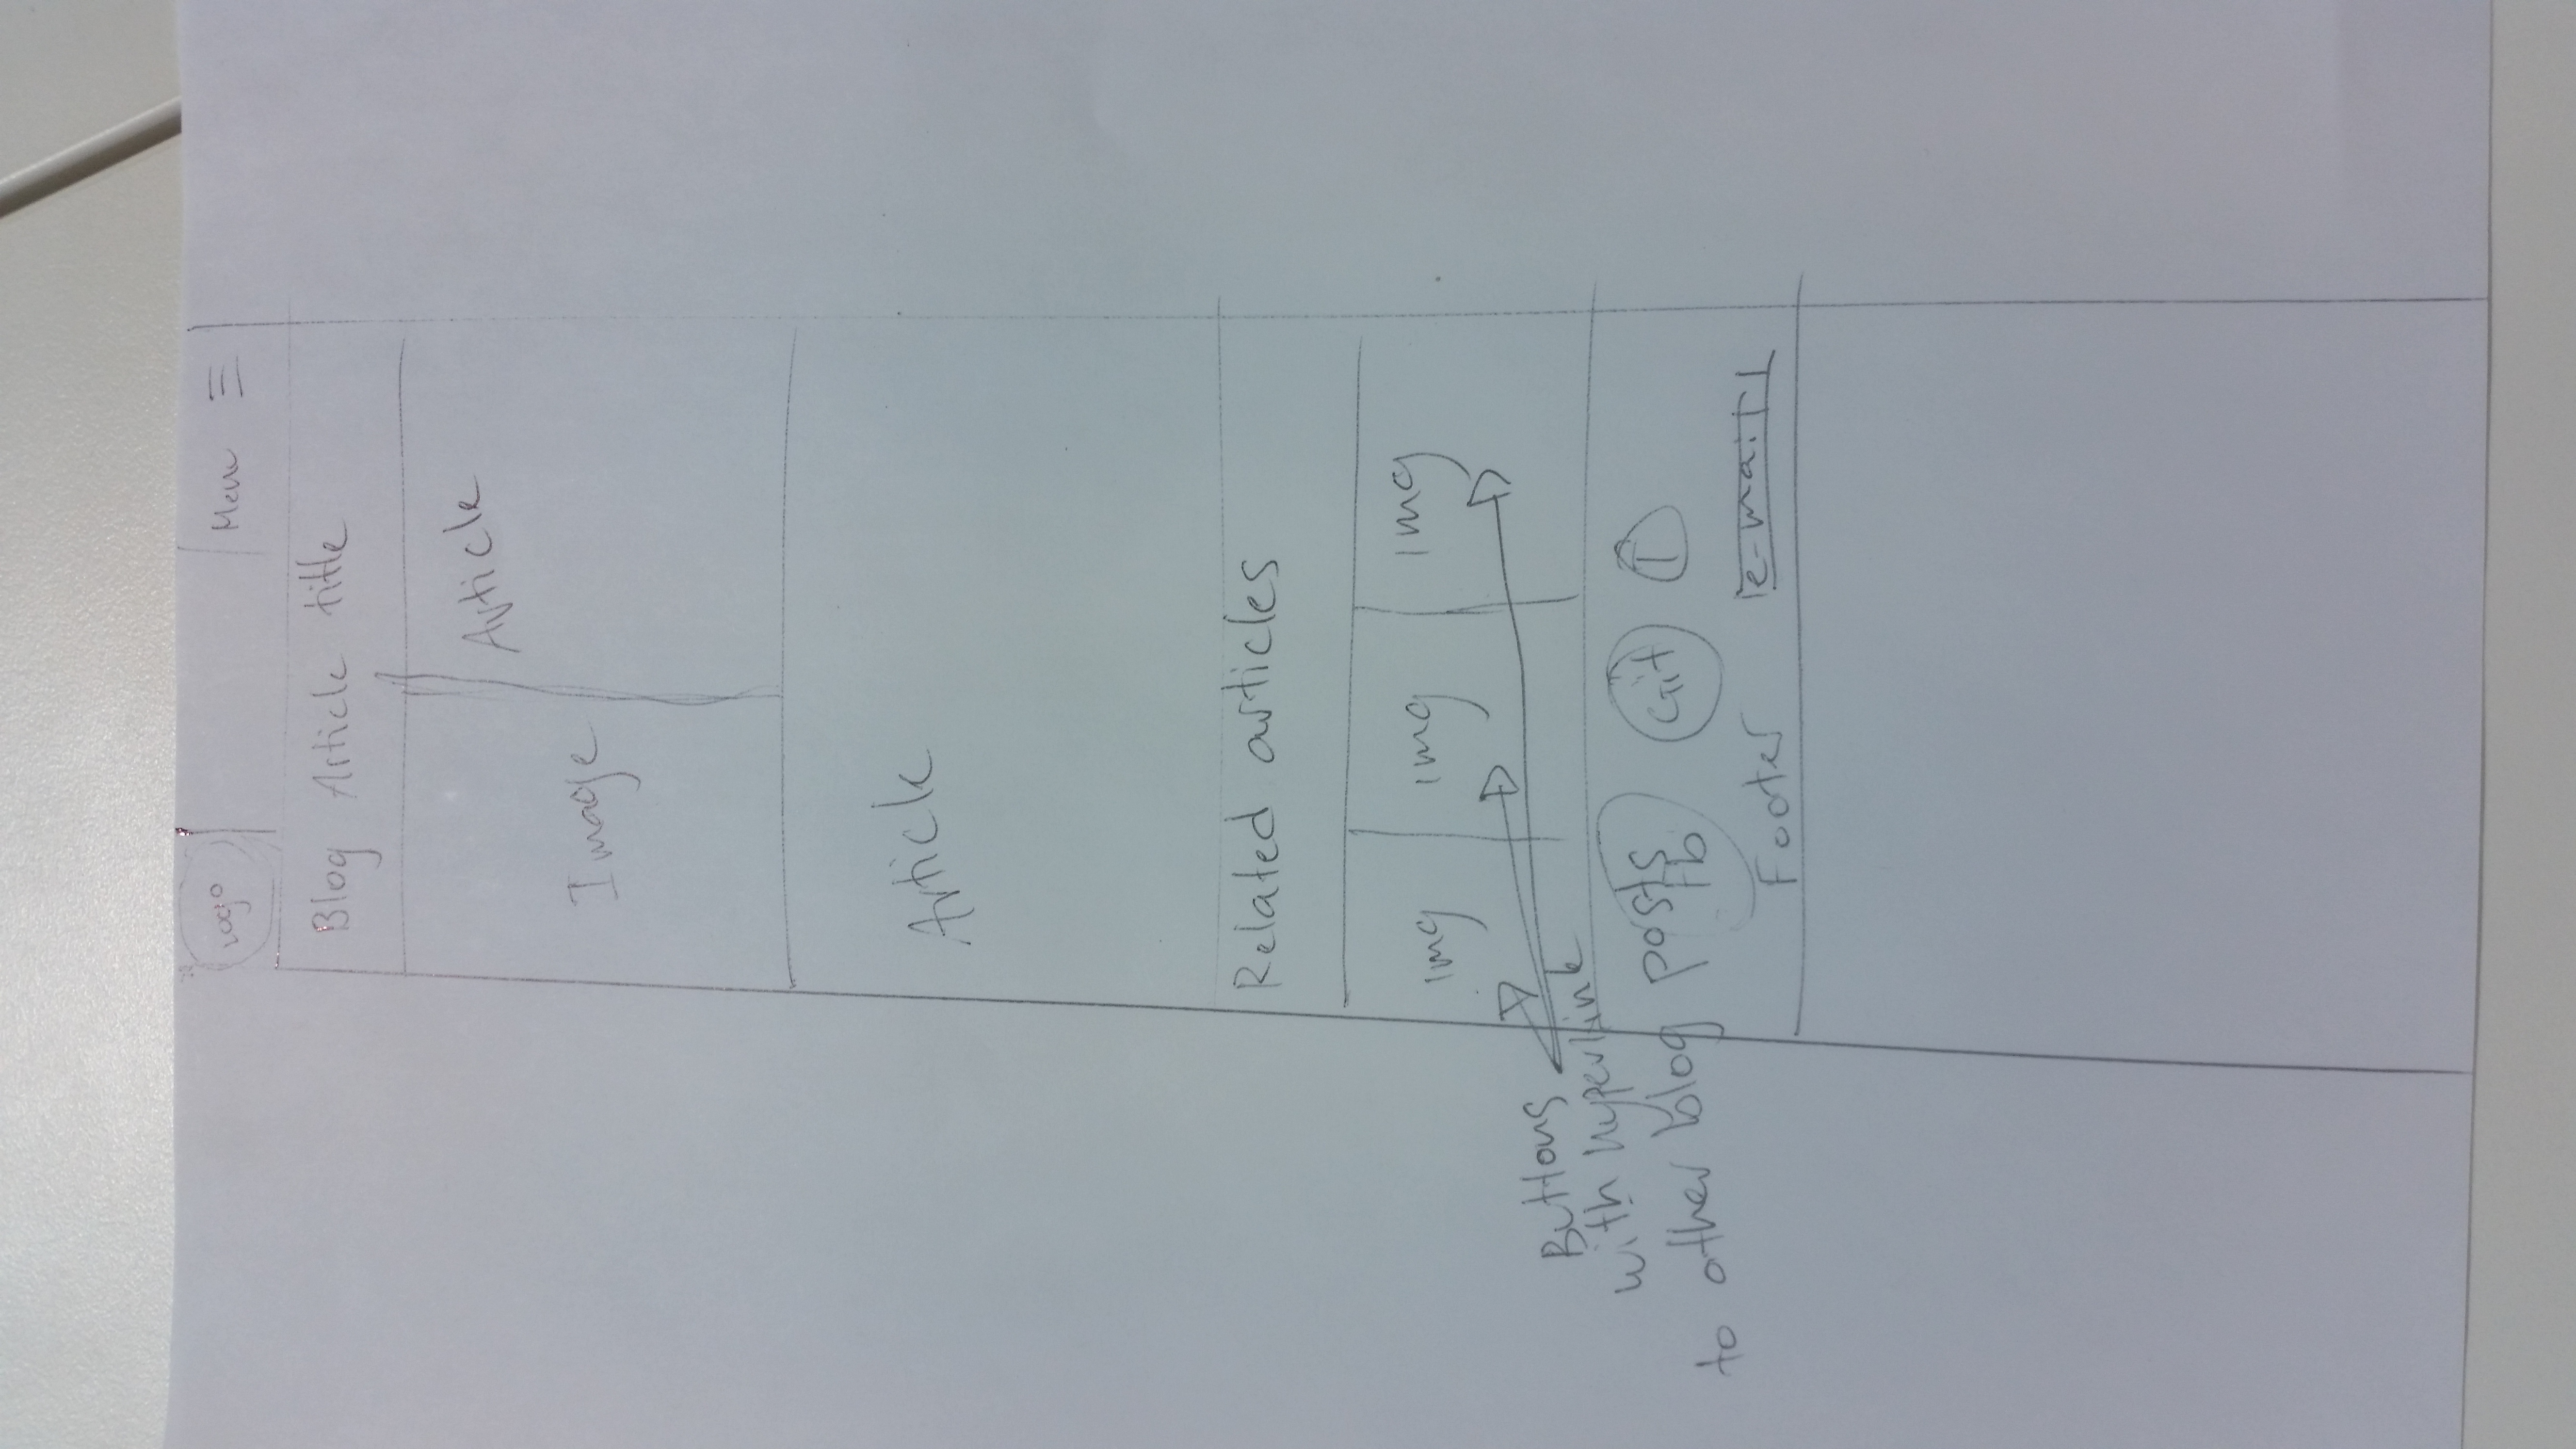 Logo
Menu
Blog Article title
Article
Image
Article
Related articles
img img img
Buttons
with hyperlink
to other blog posts
fb Git
Footer e-mail